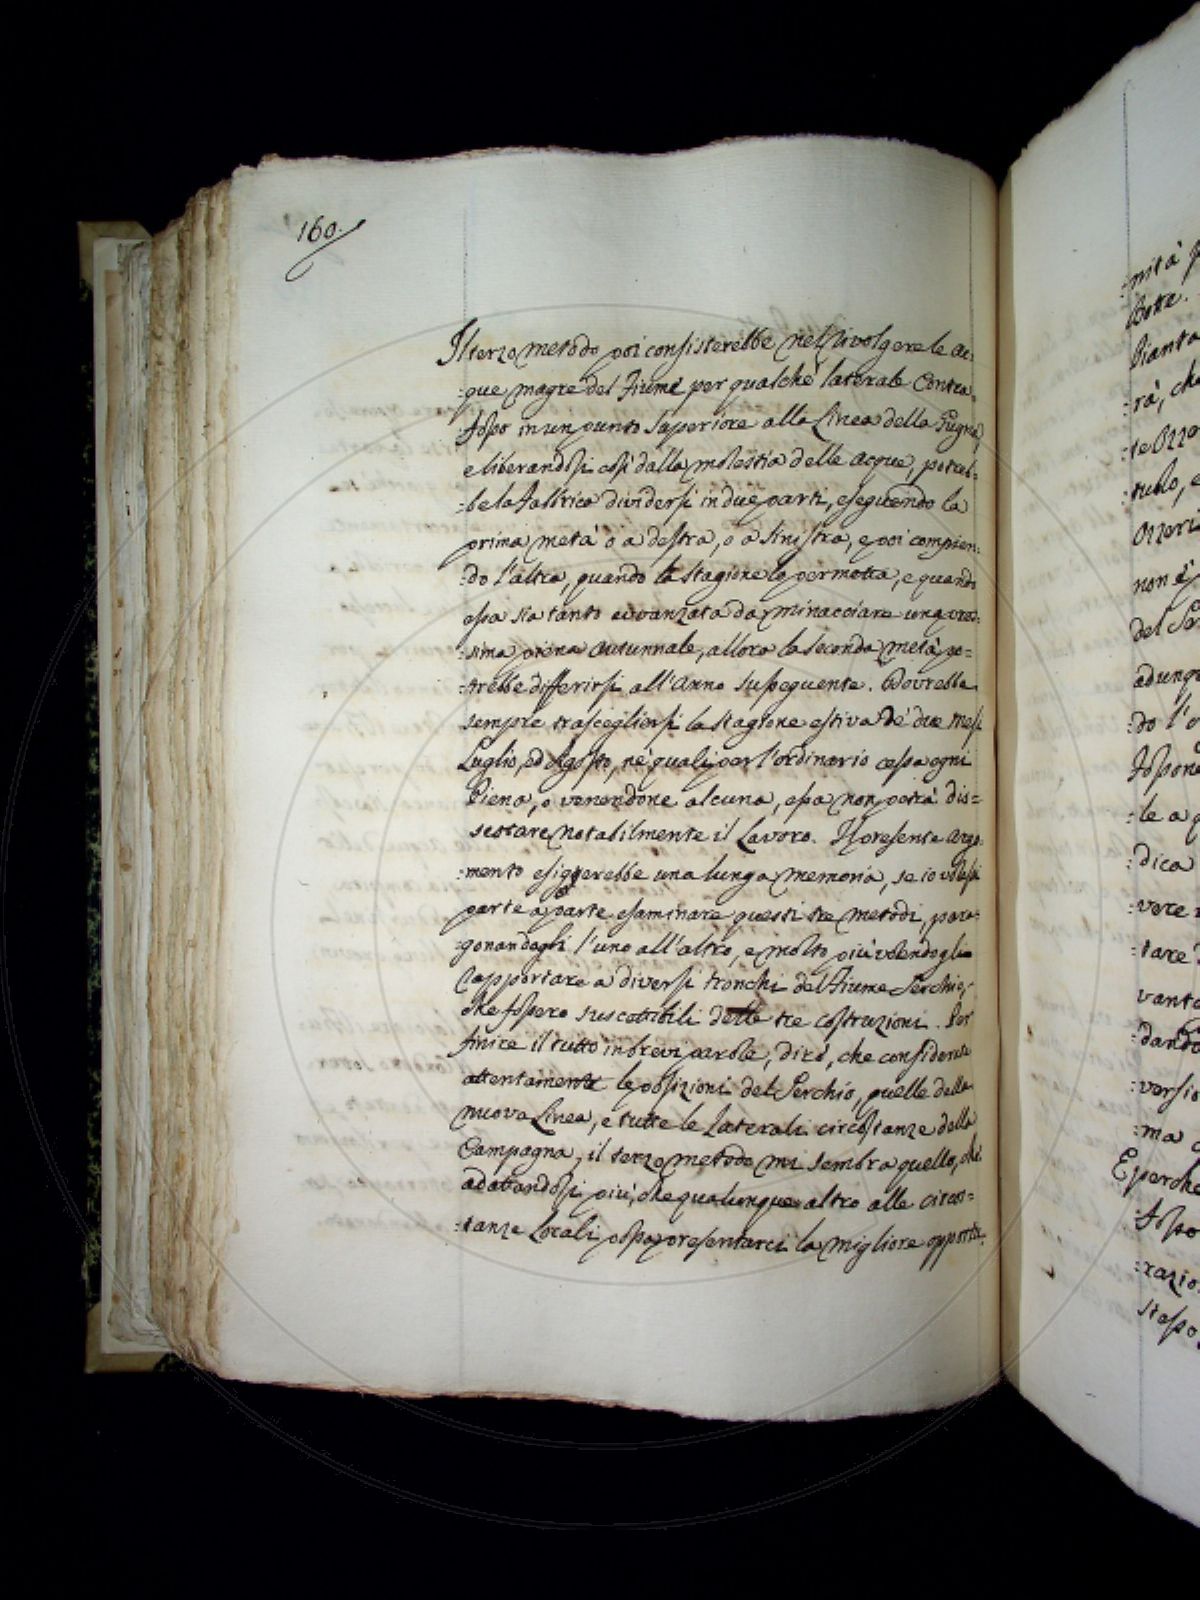 160.
Il terzo metodo poi consisterebbe nel rivolgere le ac:
:que magre del Fiume per qualche laterale Contra
fosso in un punto superiore alla Linea della Pugna,
e liberandosi così dalla molestia delle acque, potreb:
:be la fabbrica dividersi in due parti, eseguendo la
prima metà o a destra, o a sinistra, e poi compien:
:do l'altra, quando la stagione lo permetta, e quando
essa sia tanto avvanzata da minacciare una pros:
:sima piena autunnale, allora la seconda metà po=
:trebbe differirsi all'Anno susseguente. Dovrebbe
sempre trascegliersi la stagione estiva de' due mesi
Luglio, ed Agosto, ne' quali per l'ordinario cessa ogni
Piena, o venendone alcuna, essa non potrà dis=
sestare notabilmente il Lavoro. Il presente argo:
:mento esiggerebbe una lunga memoria, se io volessi
parte a parte esaminare questi tre metodi, para:
:gonandogli l'uno all'altro, e molto più volendogli
rapportare a diversi tronchi del Fiume Serchio,
che fossero suscettibili delle tre costruzioni. Per
finire il tutto in brevi parole, dirò, che considerate
attentamente le posizioni del Serchio, quelle della
nuova Linea, e tutte le Laterali circostanze della
Campagna, il terzo metodo mi sembra quello, che
adattandosi più, che qualunque altro alle circos=
:tanze Locali possa presentarci la migliore opportu:
:nità
Botte.
Pianta
:rà, che
:te Ozze
:tulo, e
Ozzeri
non è
del
adunque
:do l'
:le a
:dica
:vere
:tare
vanta
:dando
:versio
:ma
E perchè
:fosso
:razio
stesso